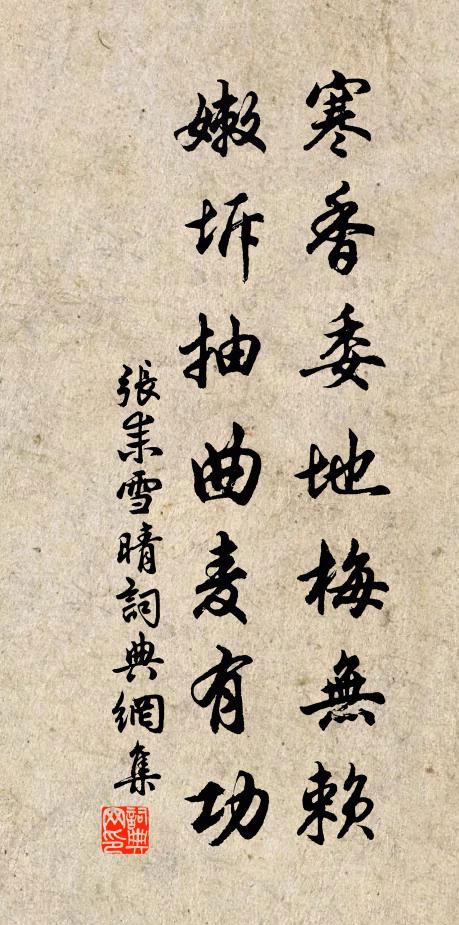 寒香委地梅無賴
嫩坼抽曲麦有功
張耒雪晴詞典網集
詞典网印